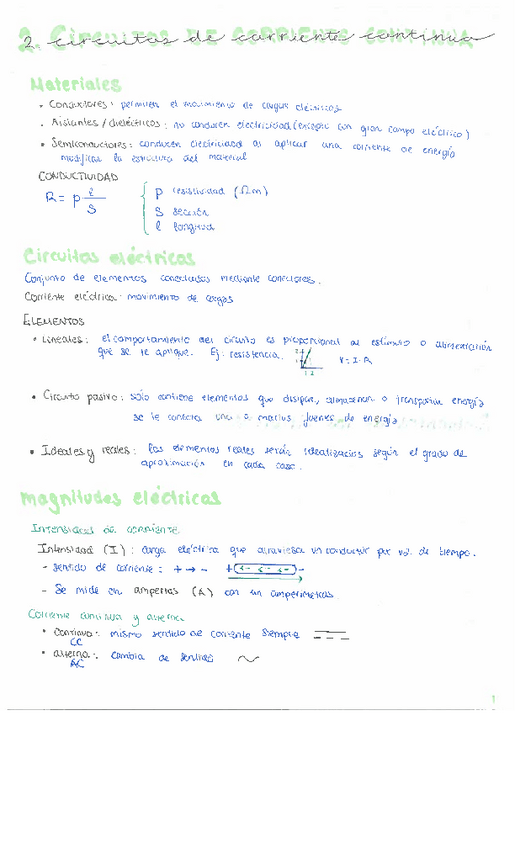 2. circuitos de corriente continua
Materiales
• Conductores: permiten el movimiento de cargas eléctricas
• Aislantes / dieléctricos: no conducen electricidad (excepto con gran campo eléctrico)
• Semiconductores: conducen electricidad al aplicar una corriente de energía
modificar la estructura del material
CONDUCTIVIDAD
R = ρ l/S
ρ resistividad (Ωm)
S sección
l longitud
Circuitos eléctricos
Conjunto de elementos conectados mediante conectores.
Corriente eléctrica: movimiento de cargas
ELEMENTOS
• Lineales: el comportamiento del circuito es proporcional al estímulo o alimentación
que se le aplique. Ej: resistencia. V = I·R
• Circuito pasivo: solo contiene elementos que disipan, almacenan o transportan energía
se le conecta una o fuentes de energía
• Ideales y reales: los elementos reales serán idealizados según el grado de
aproximación en cada caso.
Magnitudes eléctricas
Intensidad de corriente
Intensidad (I): carga eléctrica que atraviesa un conductor por ud. de tiempo.
- Sentido de corriente: + → - + -
- Se mide en amperios (A) con un amperímetro.
Corriente continua y alterna
• Continua: mismo sentido de corriente siempre
CC
• alterna: cambia de sentido
AC
1